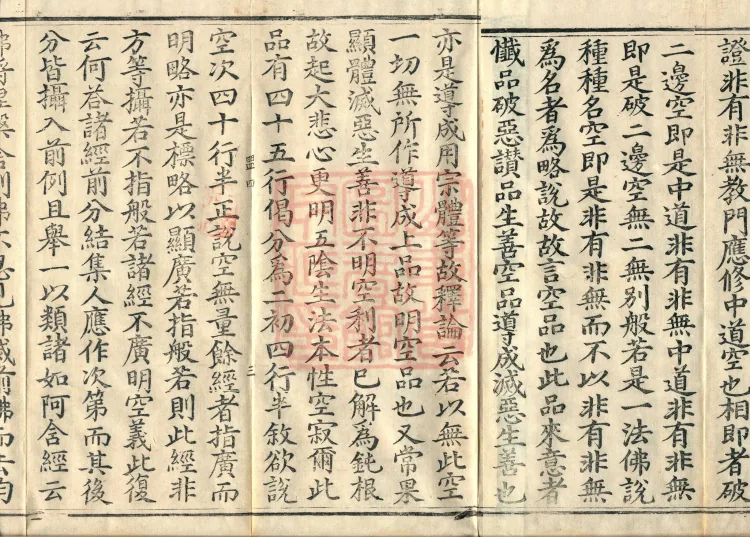 證非有非無教門應修中道空也相即者破
二邊空即是中道非有非無中道非有非無
即是破二邊空無二無別般若是一法佛說
種種名空即是非有非無而不以非有非無
為名者為略說故故言空品也此品來意者
懺品破惡讚品生善空品導成滅惡生善也
亦是導成用宗體等故釋論云若以無此空
一切無所作導成上品故明空品也又常果
顯體滅惡生善非不明空利者已解為鈍根
故起大悲心更明五陰生法本性空寂爾此
品有四十五行偈分為二初四行半敘欲說
空次四十行半正說空無量餘經者指廣而
明略亦是標略以顯廣若指般若則此經非
方等攝若不指般若諸經不廣明空義此復
云何荅諸經前分結集人應作次第而其後
分皆攝入前例且舉一以類諸如阿含經云
三